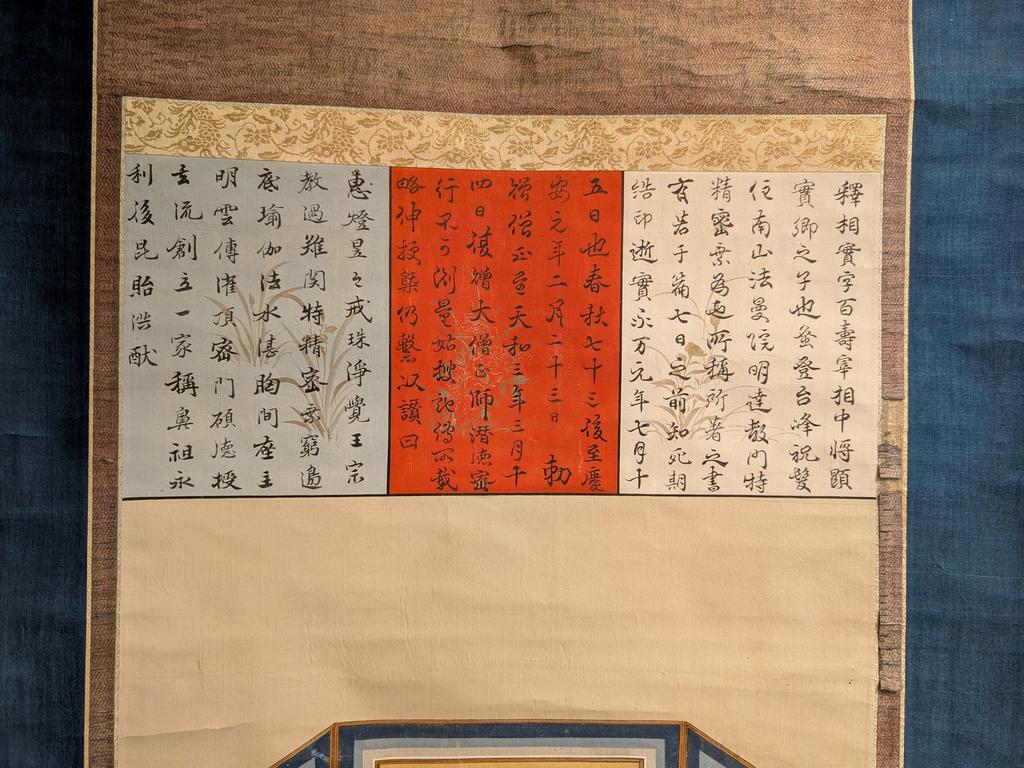 釋相實字百壽宰相中將顕
實卿之子也蚤登台峰祝髪
住南山法曼院明達教門特
精密乗為世所稱所著之書
有若于篇七日之前知死期
結印逝實永万元年七月十
五日也春秋七十三後至慶
安元年二月二十三日　勅
贈僧正至天和三年三月十
四日復贈大僧正師潜徳密
行不可測量姑摭記傳所載
略伸梗槩仍繫以讃曰
惠燈昱々戒珠淨覺王宗
教過難関特精密乗窮過
底瑜伽法水湛胸間座主
明雲傳潅頂密門碩徳授
玄流創立一家稱鼻祖永
利後昆貽浩猷